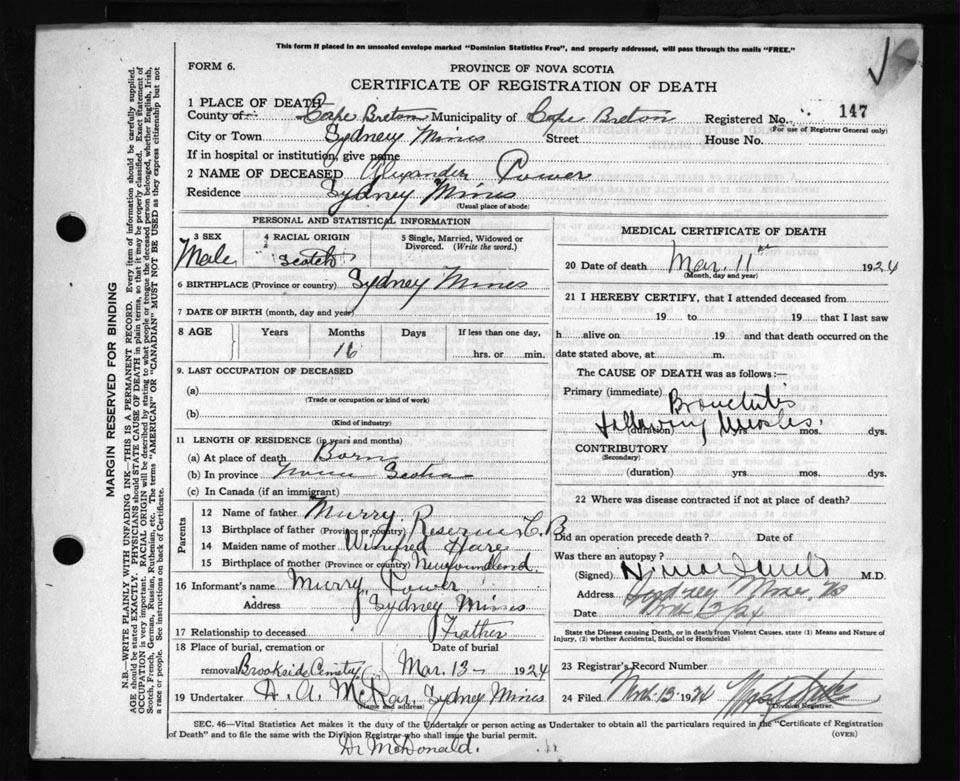 This form if placed in an unsealed envelope marked "Dominion Statistics Free", and properly addressed, will pass through the mails "FREE."
FORM 6.
PROVINCE OF NOVA SCOTIA
CERTIFICATE OF REGISTRATION OF DEATH
1 PLACE OF DEATH—
County of Cape Breton Municipality of Cape Breton Registered No. 147
(For use of Registrar General only)
City or Town Sydney Mines Street House No.
If in hospital or institution, give name
2 NAME OF DECEASED Alexander Power
Residence Sydney Mines
(Usual place of abode)
PERSONAL AND STATISTICAL INFORMATION
3 SEX 4 RACIAL ORIGIN 5 Single, Married, Widowed or Divorced. (Write the word.)
Male Scotch
6 BIRTHPLACE (Province or country) Sydney Mines
7 DATE OF BIRTH (month, day and year)
8 AGE Years Months Days If less than one day,
16 hrs. or min.
9. LAST OCCUPATION OF DECEASED
(a)
(Trade or occupation or kind of work)
(b)
(Kind of industry)
11 LENGTH OF RESIDENCE (in years and months)
(a) At place of death Born
(b) In province Nova Scotia
(c) In Canada (if an immigrant)
Parents
12 Name of father Murry
13 Birthplace of father (Province or country) Reserve C. B
14 Maiden name of mother Winifred Hare
15 Birthplace of mother (Province or country) Newfoundland.
16 Informant's name Murry Power
Address Sydney Mines
17 Relationship to deceased Father
18 Place of burial, cremation or removal Brookside Cemetry Date of burial Mar. 13 - 1924
19 Undertaker A. A. McKay, Sydney Mines
(Name and address)
MEDICAL CERTIFICATE OF DEATH
20 Date of death Mar. 11 1924
(Month, day and year)
21 I HEREBY CERTIFY, that I attended deceased from
19 to 19 that I last saw
h alive on 19 and that death occurred on the
date stated above, at m.
The CAUSE OF DEATH was as follows:—
Primary (immediate) Bronchitis
following Measles.
(duration) yrs. mos. dys.
CONTRIBUTORY
(Secondary)
(duration) yrs. mos. dys.
22 Where was disease contracted if not at place of death?
Did an operation precede death? Date of
Was there an autopsy?
(Signed) M.D.
Address Sydney Mines
Date Mch 13/24
State the Disease causing Death, or in death from Violent Causes, state (1) Means and Nature of Injury, (2) whether Accidental, Suicidal or Homicidal
23 Registrar's Record Number
24 Filed Mch 13 1924
Division Registrar.
SEC. 46—Vital Statistics Act makes it the duty of the Undertaker or person acting as Undertaker to obtain all the particulars required in the "Certificate of Registration
of Death" and to file the same with the Division Registrar who shall issue the burial permit.
(OVER)
Dr McDonald.
MARGIN RESERVED FOR BINDING
N.B.—WRITE PLAINLY WITH UNFADING INK—THIS IS A PERMANENT RECORD. Every item of information should be carefully supplied.
AGE should be stated EXACTLY. PHYSICIANS should STATE CAUSE OF DEATH in plain terms, so that it may be properly classified. Exact statement of
OCCUPATION is very important. RACIAL ORIGIN will be described by stating to what people or tongue the deceased person belonged, whether English, Irish,
Scotch, French, German, Russian, Ruthenian, etc. The terms "AMERICAN" or "CANADIAN" MUST NOT BE USED as they express citizenship but not
a race or people. See instructions on back of Certificate.